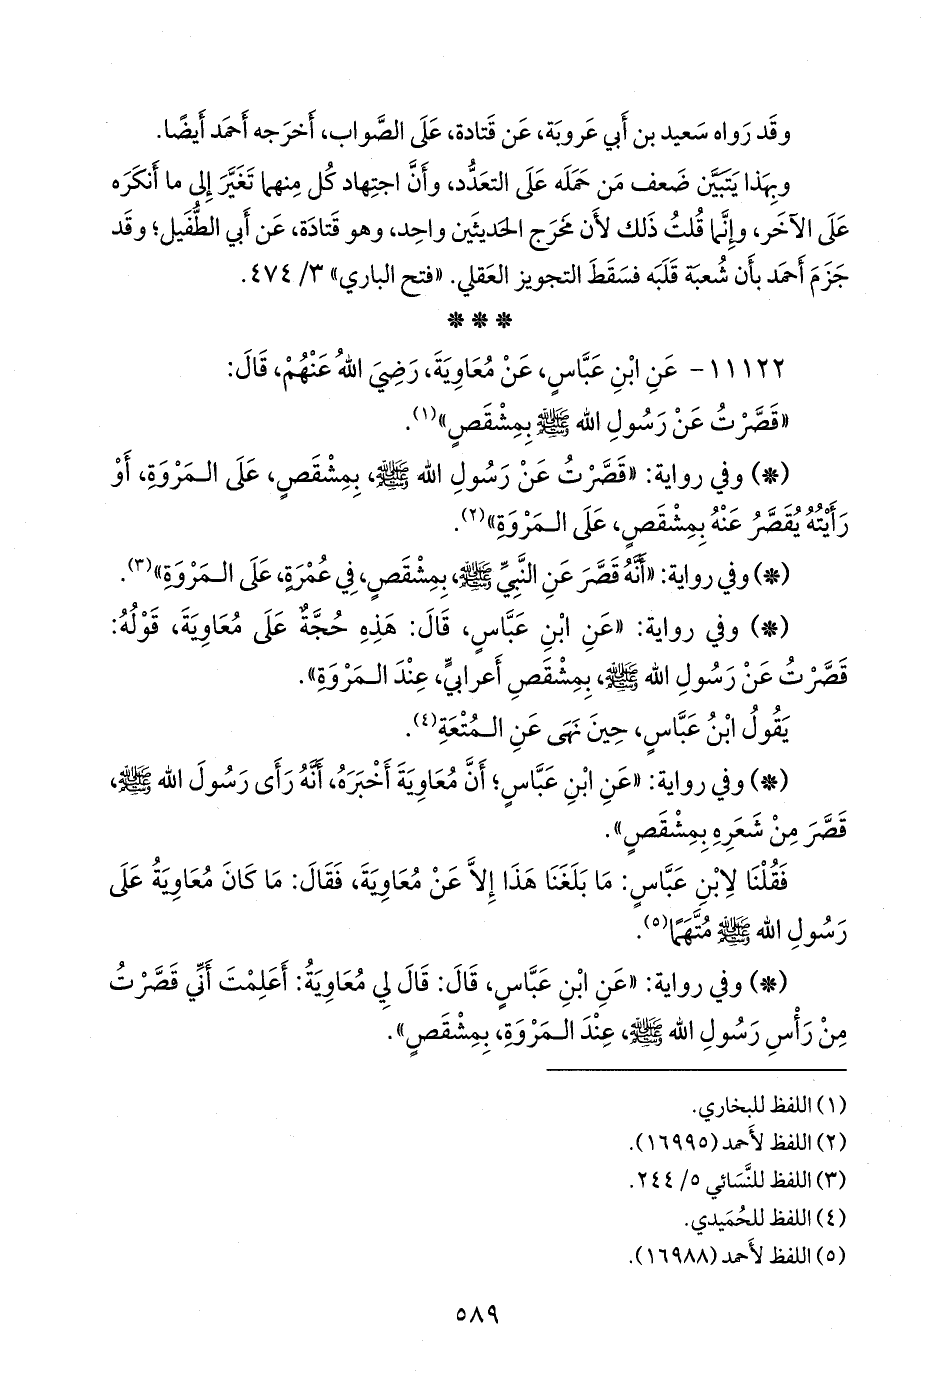 وقَد رَواه سَعيد بن أَبي عَروبَة، عَن قَتادة، عَلَى الصَّواب، أَخرَجه أَحمَد أَيضًا.
وبِهَذا يَتَبَيَّن ضَعف مَن حَمَلَه عَلَى التعَدُّد، وأَنَّ اجتِهاد كُل مِنهما تَغَيَّرَ إِلى ما أَنكَرَه
عَلَى الآخَر، وإِنَّما قُلتُ ذَلك لأَن مَخرَج الحَديثَين واحِد، وهو قَتادَة، عَن أَبي الطُّفَيل؛ وقَد
جَزَمَ أَحمَد بأَن شُعبَة قَلَبَه فسَقَطَ التجويز العَقلي. «فتح الباري» ٣/ ٤٧٤.
* * *
١١١٢٢- عَنِ ابْنِ عَبَّاسٍ، عَنْ مُعَاوِيَةَ، رَضِيَ اللهُ عَنْهُمْ، قَالَ:
«قَصَّرْتُ عَنْ رَسُولِ الله ﷺ بِمِشْقَصٍ»(١).
(*) وفي رواية: «قَصَّرْتُ عَنْ رَسُولِ الله ﷺ، بِمِشْقَصٍ، عَلَى الـمَرْوَةِ، أَوْ
رَأَيْتُهُ يُقَصَّرُ عَنْهُ بِمِشْقَصٍ، عَلَى الـمَرْوَةِ»(٢).
(*) وفي رواية: «أَنَّهُ قَصَّرَ عَنِ النَّبِيِّ ﷺ، بِمِشْقَصٍ، فِي عُمْرَةٍ، عَلَى الـمَرْوَةِ»(٣).
(*) وفي رواية: «عَنِ ابْنِ عَبَّاسٍ، قَالَ: هَذِهِ حُجَّةٌ عَلَى مُعَاوِيَةَ، قَوْلُهُ:
قَصَّرْتُ عَنْ رَسُولِ الله ﷺ، بِمِشْقَصِ أَعرابيٍّ، عِنْدَ الـمَرْوَةِ».
يَقُولُ ابْنُ عَبَّاسٍ، حِينَ نَهَى عَنِ الـمُتْعَةِ(٤).
(*) وفي رواية: «عَنِ ابْنِ عَبَّاسٍ؛ أَنَّ مُعَاوِيَةَ أَخْبَرَهُ، أَنَّهُ رَأَى رَسُولَ الله ﷺ،
قَصَّرَ مِنْ شَعَرِهِ بِمِشْقَصٍ».
فَقُلْنَا لاِبْنِ عَبَّاسٍ: مَا بَلَغَنَا هَذَا إِلاَّ عَنْ مُعَاوِيَةَ، فَقَالَ: مَا كَانَ مُعَاوِيَةُ عَلَى
رَسُولِ الله ﷺ مُتَّهَمًا(٥).
(*) وفي رواية: «عَنِ ابْنِ عَبَّاسٍ، قَالَ: قَالَ لِي مُعَاوِيَةُ: أَعَلِمْتَ أَنِّي قَصَّرْتُ
مِنْ رَأْسِ رَسُولِ الله ﷺ، عِنْدَ الـمَرْوَةِ، بِمِشْقَصٍ».
(١) اللفظ للبخاري.
(٢) اللفظ لأَحمد (١٦٩٩٥).
(٣) اللفظ للنَّسَائي ٥/ ٢٤٤.
(٤) اللفظ للحُمَيدي.
(٥) اللفظ لأَحمد (١٦٩٨٨).
٥٨٩